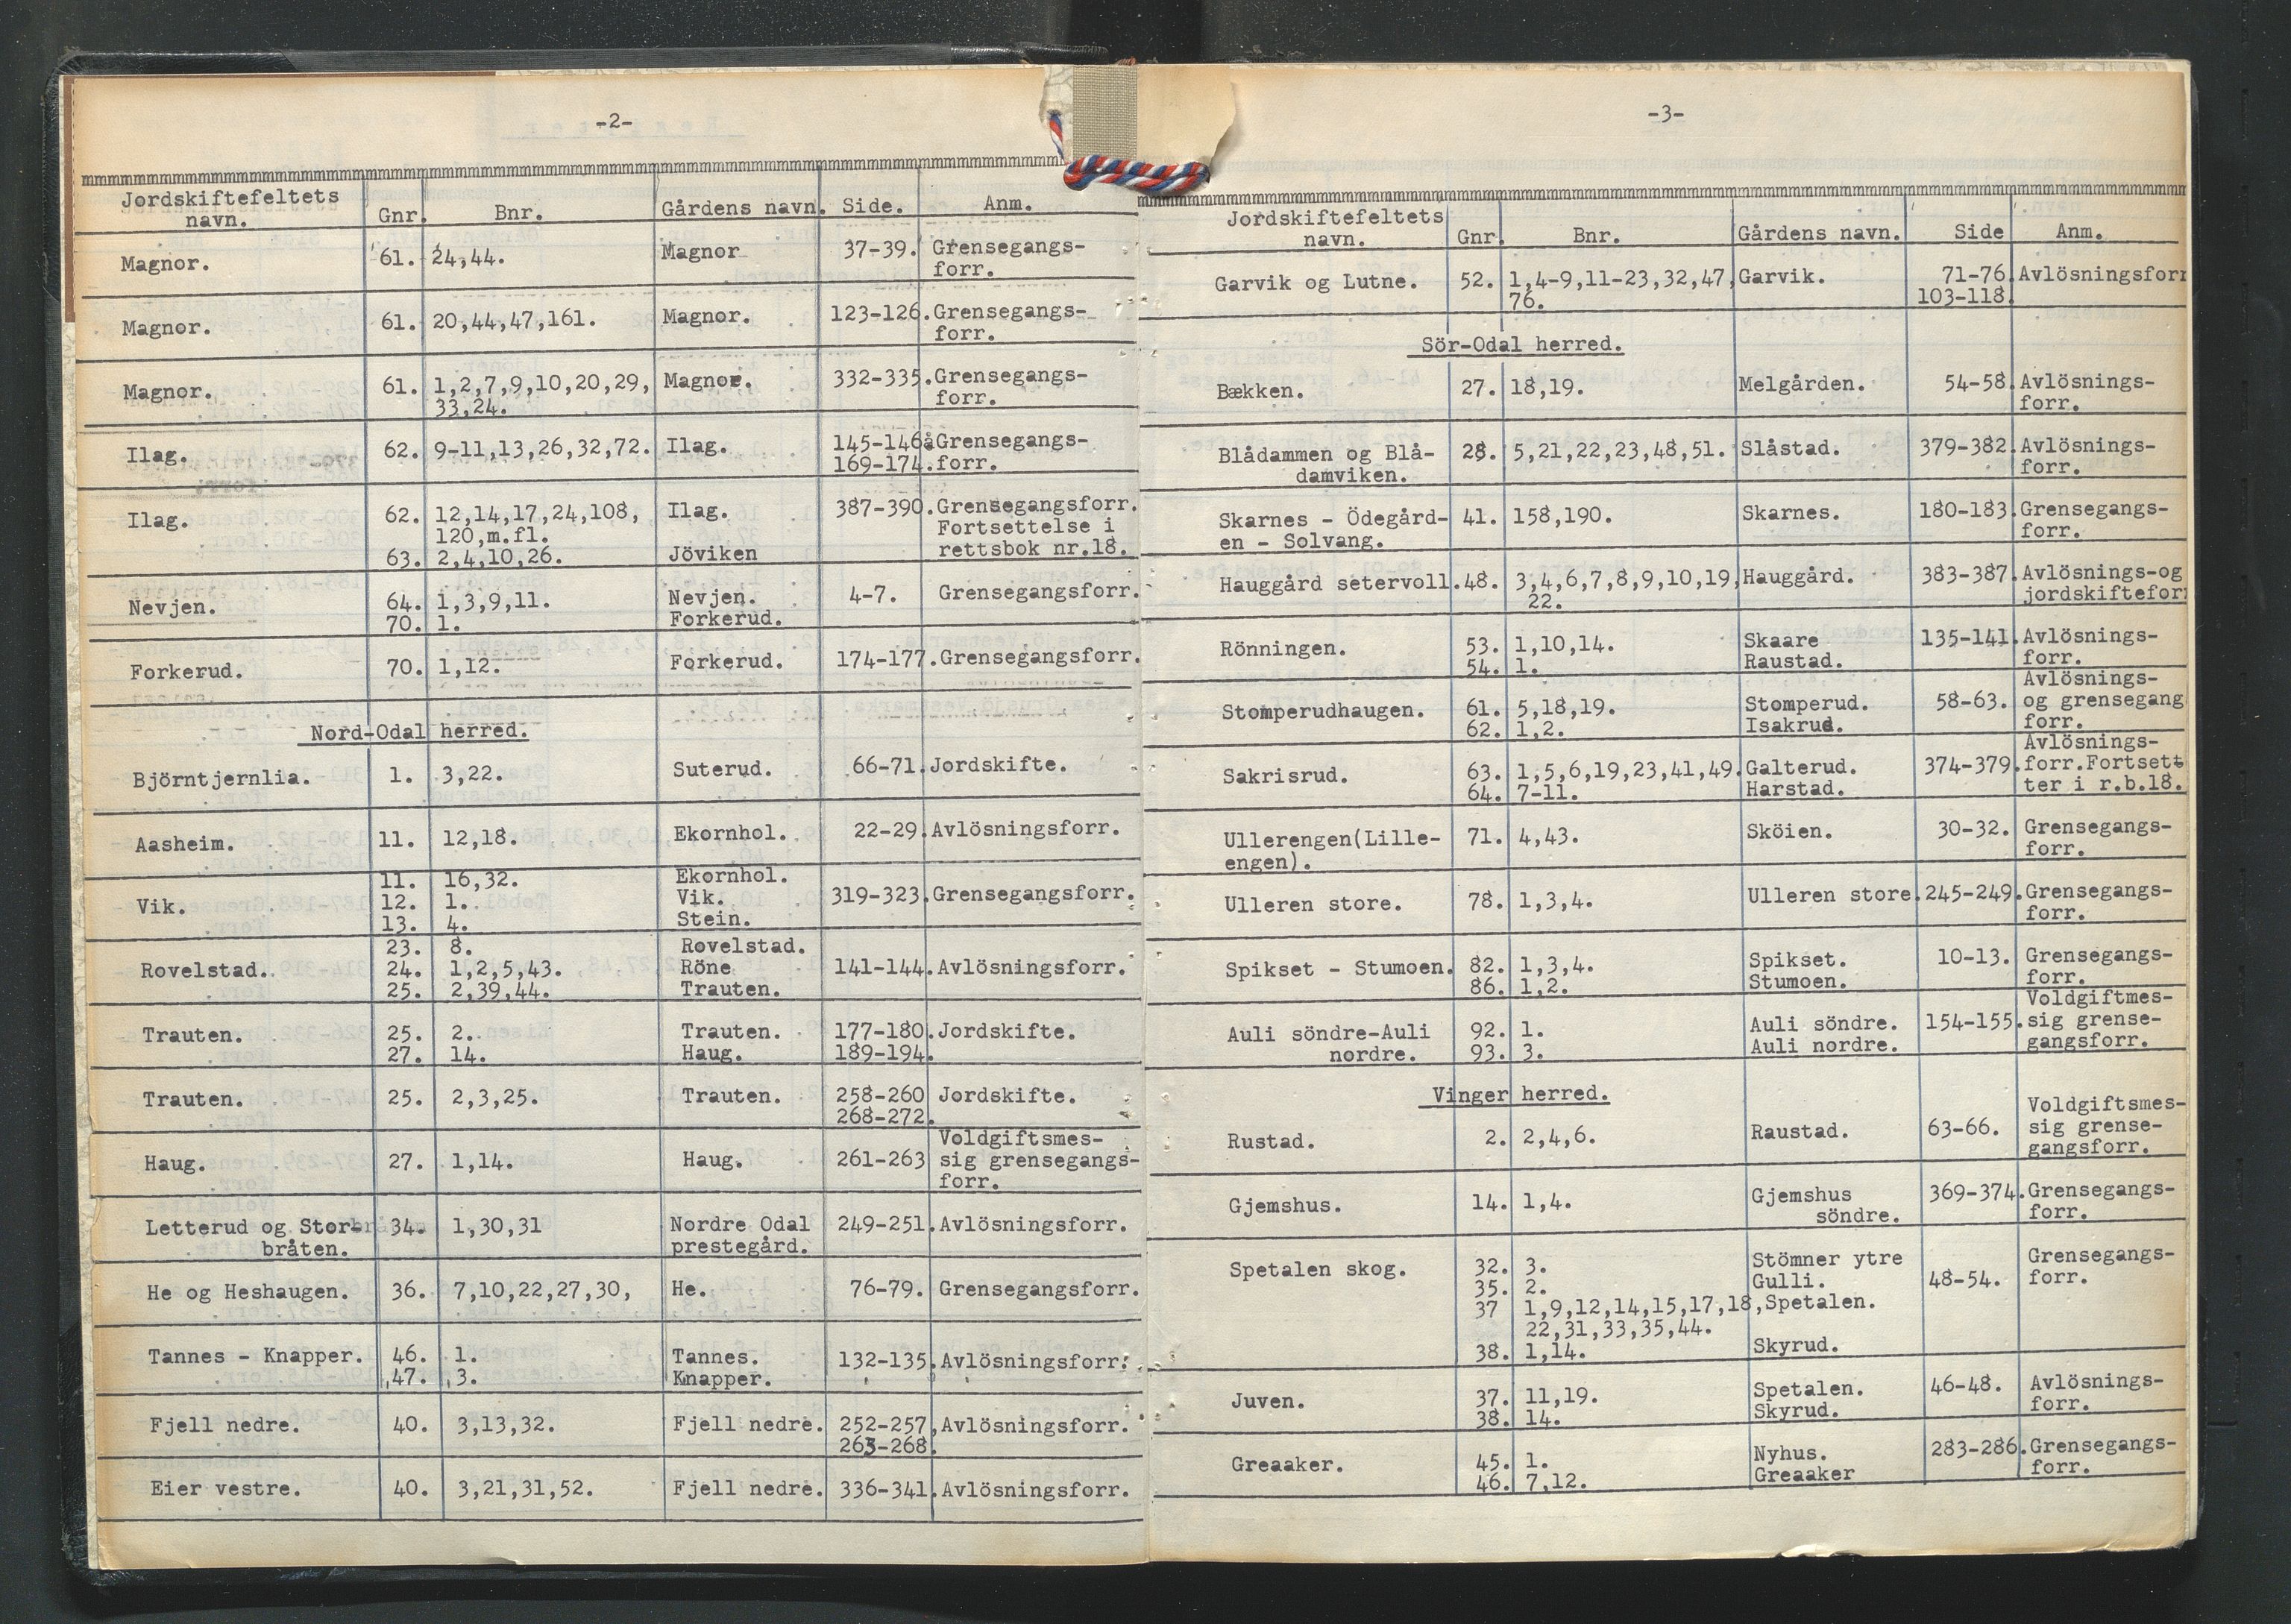 -2-
Jordskiftefeltets navn. Gnr. Bnr. Gårdens navn. Side. Anm.
Magnor. 61. 24,44. Magnor 37-39. Grensegangs-
forr.
Magnor. 61. 20,44,47,161. Magnor. 123-126. Grensegangs-
forr.
Magnor. 61. 1,2,7,9,10,20,29, Magnor. 332-335. Grensegangs-
33,24. forr.
Ilag. 62. 9-11,13,26,32,72. Ilag. 145-146å Grensegangs-
169-174. forr.
Ilag. 62. 12,14,17,24,108, Ilag. 387-390. Grensegangsforr.
120,m.fl. Fortsettelse i
63. 2,4,10,26. Jöviken rettsbok nr.18.
Nevjen. 64. 1,3,9,11. Nevjen. 4-7. Grensegangsforr.
70. 1. Forkerud.
Forkerud. 70. 1,12. Forkerud. 174-177. Grensegangsforr.
Nord-Odal herred.
Björntjernlia. 1. 3,22. Suterud. 66-71. Jordskifte.
Aasheim. 11. 12,18. Ekornhol. 22-29. Avlösningsforr.
11. 16,32. Ekornhol.
Vik. 12. 1. Vik. 319-323. Grensegangsforr.
13. 4. Stein.
23. 8. Rovelstad.
Rovelstad. 24. 1,2,5,43. Röne 141-144. Avlösningsforr.
25. 2,39,44. Trauten.
Trauten. 25. 2. Trauten. 177-180. Jordskifte.
27. 14. Haug. 189-194.
Trauten. 25. 2,3,25. Trauten. 258-260 Jordskifte.
268-272.
Voldgiftsmes-
Haug. 27. 1,14. Haug. 261-263 sig grensegangs-
forr.
Letterud og Stor- 34. 1,30,31 Nordre Odal 249-251. Avlösningsforr.
bråten. prestegård.
He og Heshaugen. 36. 7,10,22,27,30, He. 76-79. Grensegangsforr.
Tannes - Knapper. 46. 1. Tannes. 132-135. Avlösningsforr.
47. 3. Knapper.
Fjell nedre. 40. 3,13,32. Fjell nedre. 252-257, Avlösningsforr.
263-268.
Eier vestre. 40. 3,21,31,52. Fjell nedre. 336-341. Avlösningsforr.
-3-
Jordskiftefeltets navn. Gnr. Bnr. Gårdens navn. Side Anm.
Garvik og Lutne. 52. 1,4-9,11-23,32,47, Garvik. 71-76. Avlösningsforr
76. 103-118.
Sör-Odal herred.
Bækken. 27. 18,19. Melgården. 54-58. Avlösnings-
forr.
Blådammen og Blå- 28. 5,21,22,23,48,51. Slåstad. 379-382. Avlösnings-
damviken. forr.
Skarnes - Ödegård- 41. 158,190. Skarnes. 180-183. Grensegangs-
en - Solvang. forr.
Hauggård setervoll. 48. 3,4,6,7,8,9,10,19, Hauggård. 383-387. Avlösnings-og
22. jordskiftefor
Rönningen. 53. 1,10,14. Skaare 135-141. Avlösnings-
54. 1. Raustad. forr.
Avlösnings-
Stomperudhaugen. 61. 5,18,19. Stomperud. 58-63. og grensegang
62. 1,2. Isakrud. forr.
Avlösnings-
Sakrisrud. 63. 1,5,6,19,23,41,49. Galterud. 374-379. forr.Fortsett
64. 7-11. Harstad. ter i r.b.18.
Ullerengen(Lille- 71. 4,43. Sköien. 30-32. Grensegangs-
engen). forr.
Ulleren store. 78. 1,3,4. Ulleren store. 245-249. Grensegangs-
forr.
Spikset - Stumoen. 82. 1,3,4. Spikset. 10-13. Grensegangs-
86. 1,2. Stumoen. forr.
Voldgiftmes-
Auli söndre-Auli 92. 1. Auli söndre. 154-155. sig grense-
nordre. 93. 3. Auli nordre. gangsforr.
Vinger herred.
Voldgiftsmes-
Rustad. 2. 2,4,6. Raustad. 63-66. sig grense-
gangsforr.
Gjemshus. 14. 1,4. Gjemshus 369-374. Grensegangs-
söndre. forr.
Spetalen skog. 32. 3. Stömner ytre Grensegangs-
35. 2. Gulli. 48-54. forr.
37 1,9,12,14,15,17,18, Spetalen.
22,31,33,35,44.
38. 1,14. Skyrud.
Juven. 37. 11,19. Spetalen. 46-48. Avlösnings-
38. 14. Skyrud. forr.
Greaaker. 45. 1. Nyhus. 283-286. Grensegangs-
46. 7,12. Greaaker forr.